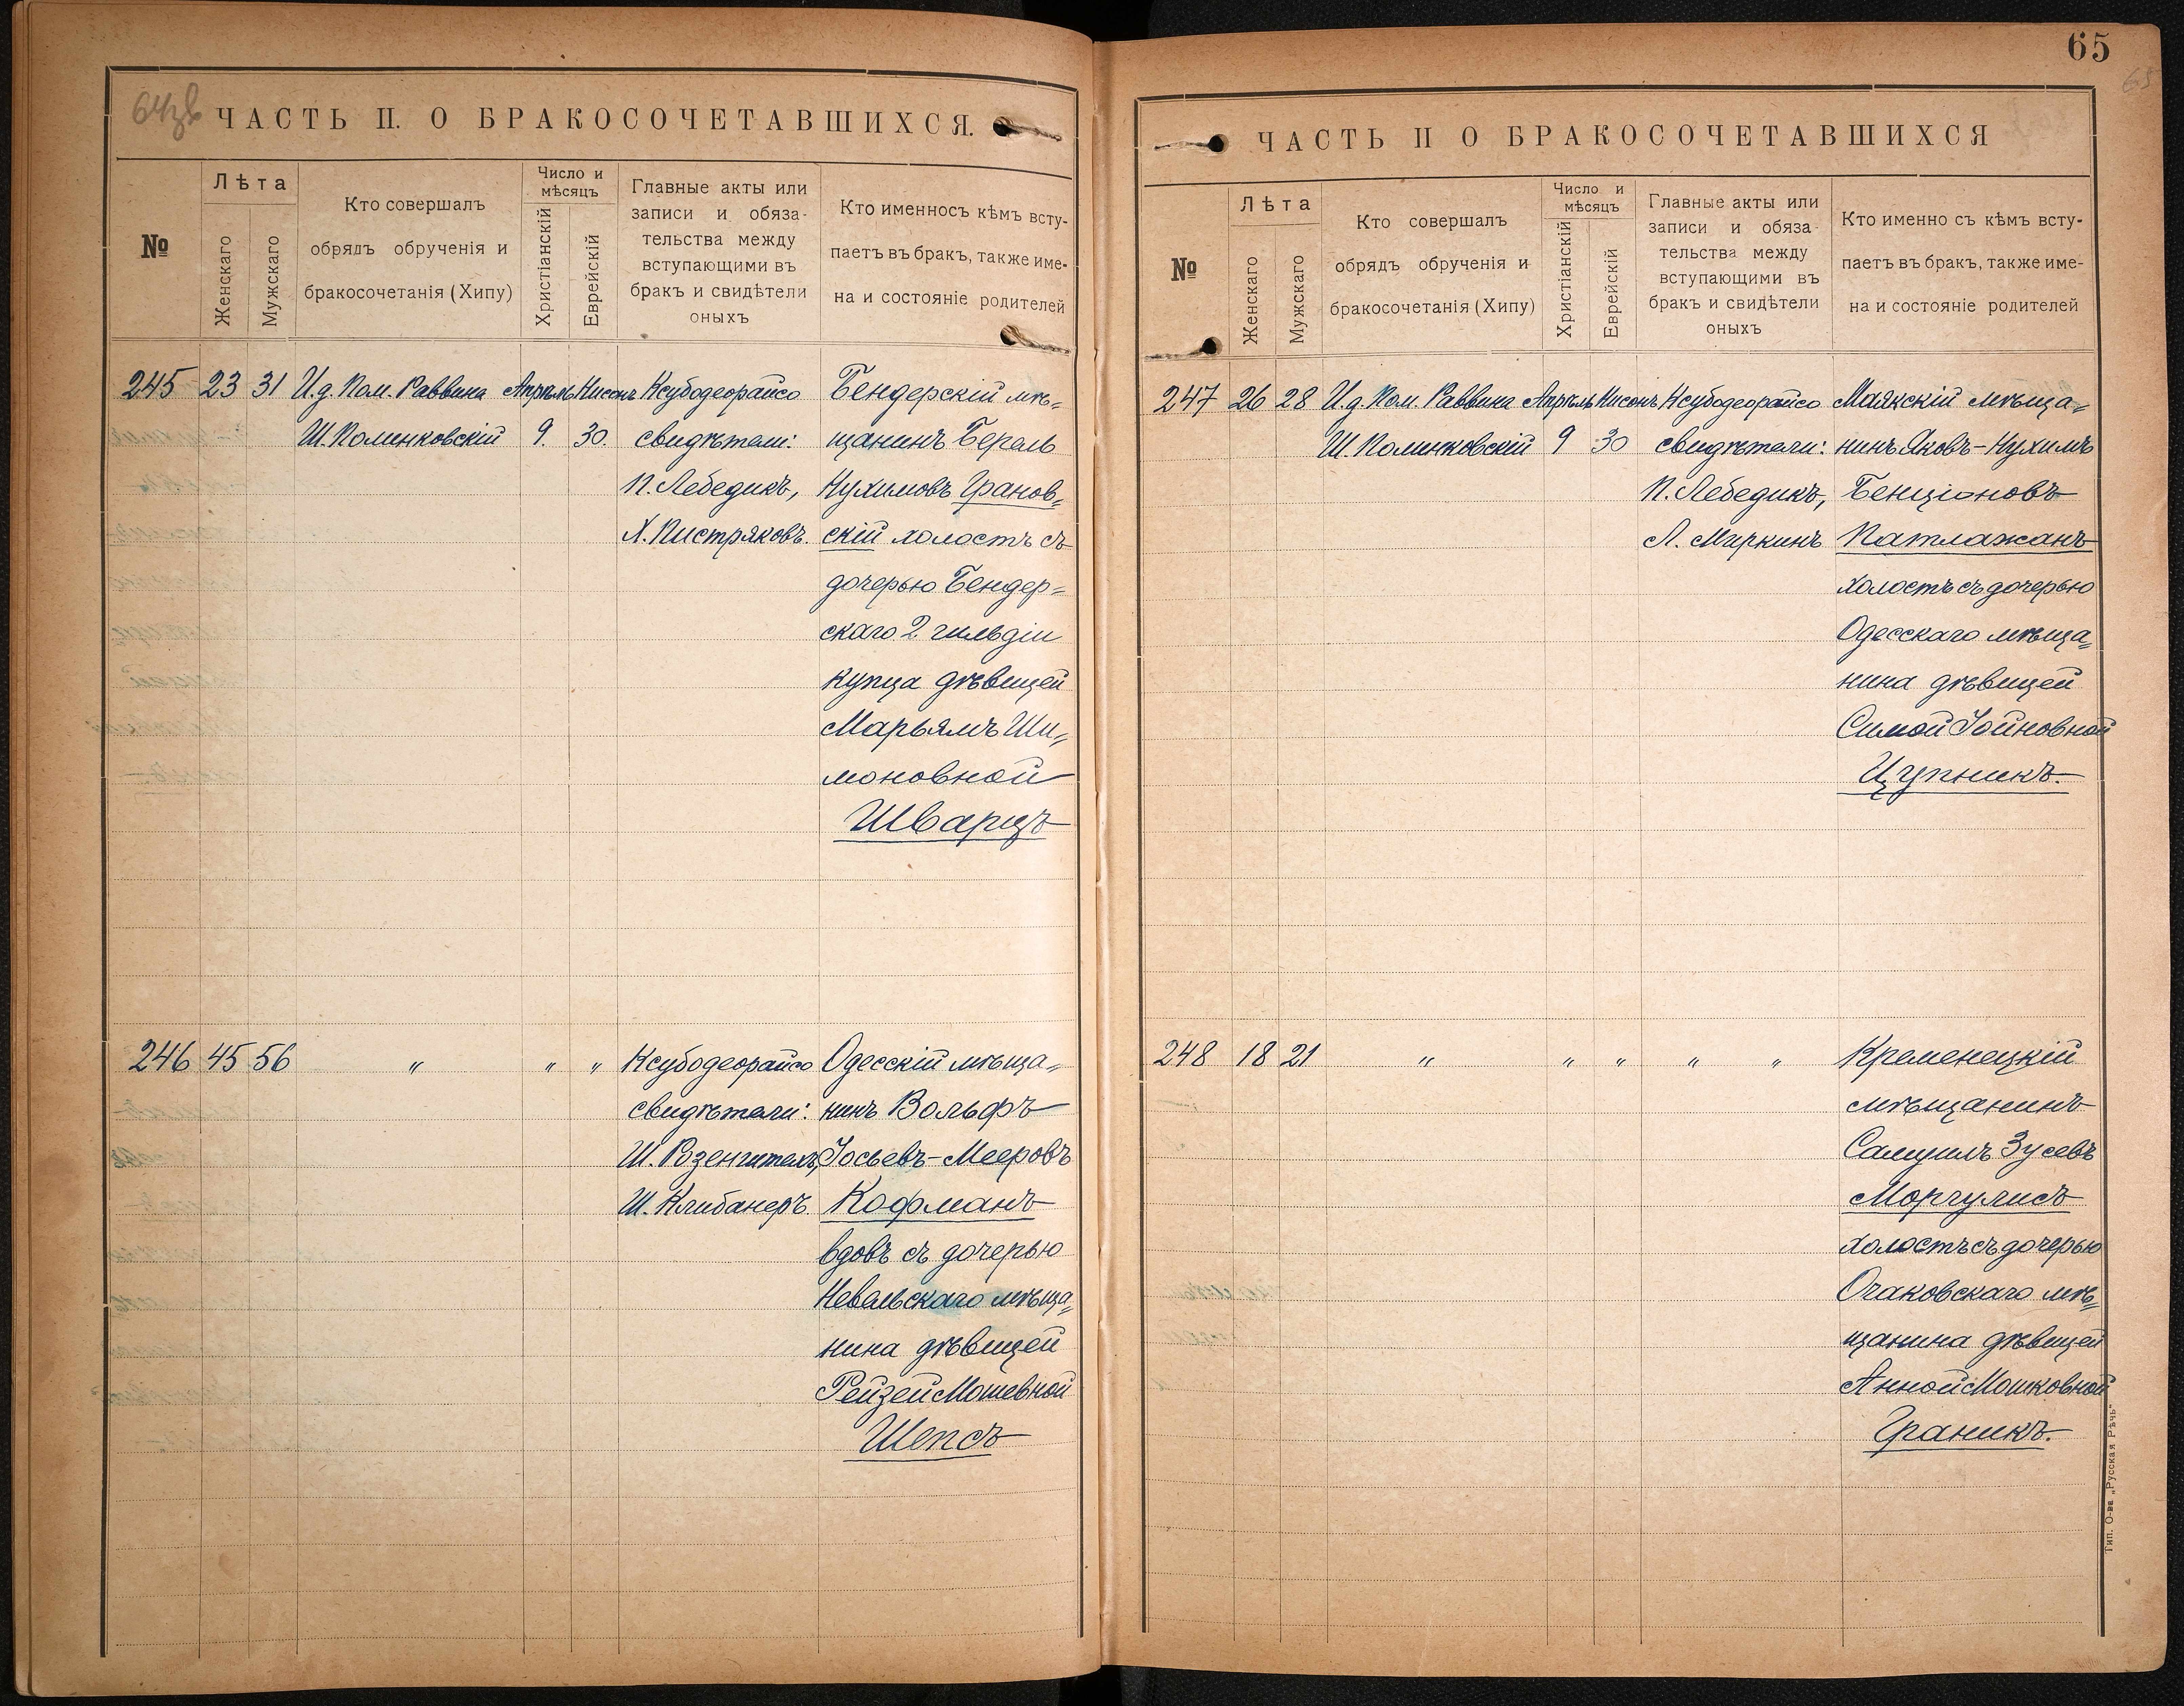 64зв
ЧАСТЬ II. О БРАКОСОЧЕТАВШИХСЯ.
№
Лѣта
Женскаго
Мужскаго
Кто совершалъ
обрядъ обрученія и
бракосочетанія (Хипу)
Число и
мѣсяцъ
Христіанскій
Еврейскій
Главные акты или
записи и обяза-
тельства между
вступающими въ
бракъ и свидѣтели
оныхъ
Кто именносъ кѣмъ всту-
паетъ въ бракъ, также име-
на и состояніе родителей
245 23 31 И.д. Пом. Раввина Апрѣль Нисонъ Ксубодеорайсо Бендерскій мѣ=
Ш. Полинковскій 9. 30. свидѣтели: щанинъ Берель
П. Лебедикъ, Нухимовъ Гранов=
Х. Пистряковъ. скій холостъ съ
дочерью Бендер=
скаго 2 гильдіи
купца дѣвицей
Марьямъ Ши=
моновной
Шварцъ
246 45 56 " " " Ксубодеорайсо Одесскій мѣща=
свидѣтели: нинъ Вольфъ
Ш. Іосьевъ-Мееровъ
Ш. Клибанеръ. Кофманъ
вдовъ съ дочерью
Невельскаго мѣща=
нина дѣвицей
Рейзей Мошевной
Шепсъ
65
65
ЧАСТЬ II О БРАКОСОЧЕТАВШИХСЯ
№
Лѣта
Женскаго
Мужскаго
Кто совершалъ
обрядъ обрученія и
бракосочетанія (Хипу)
Число и
мѣсяцъ
Христіанскій
Еврейскій
Главные акты или
записи и обяза-
тельства между
вступающими въ
бракъ и свидѣтели
оныхъ
Кто именно съ кѣмъ всту-
паетъ въ бракъ, также име-
на и состояніе родителей
247 26 28 И.д. Пом. Раввина Апрѣль Нисонъ Ксубодеорайсо Маякскій мѣща=
Ш. Полинковскій 9 30 свидѣтели: нинъ Яковъ-Нухимъ
П. Лебедикъ, Бенціоновъ
Л. Миркинъ Патлажанъ
холостъ съ дочерью
Одесскаго мѣща=
нина дѣвицей
Симой Іойновной
Цупникъ.
248 18 21 " " " " " Кременецкій
мѣщанинъ
Самуилъ Зусевъ
Моргулисъ
холостъ съ дочерью
Очаковскаго мѣ=
щанина дѣвицей
Анной Мошковной
Граникъ.
Тип. О-ва „Русская Рѣчь"